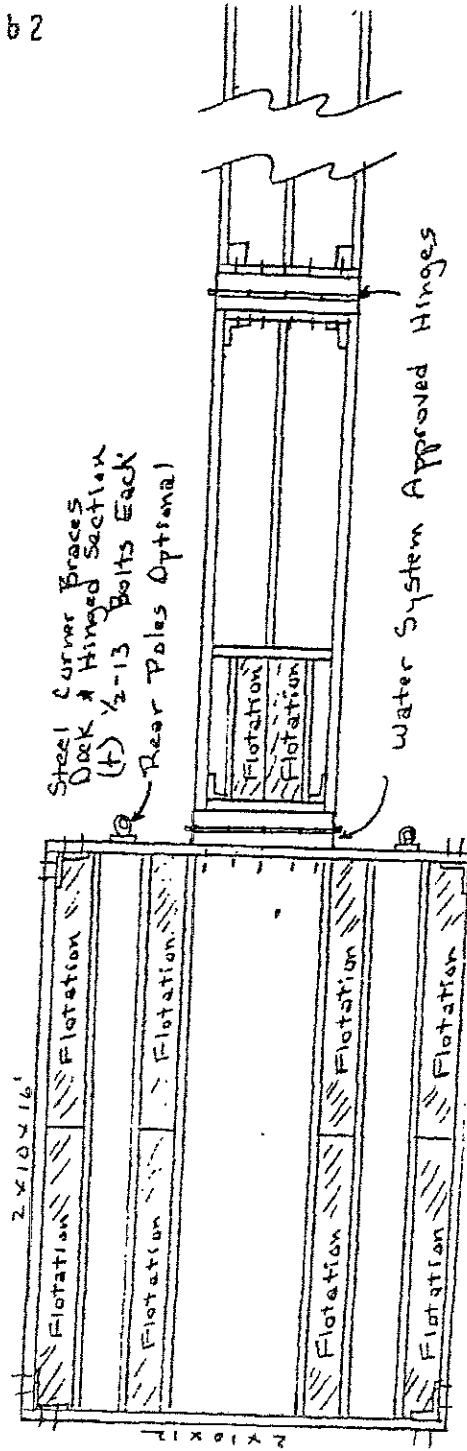 b 2
Steel Corner Braces
Dock & Hinged Section
(4) 1/2-13 Bolts Each
Rear Poles Optional
Water System Approved Hinges
2 x 10 x 16'
2 x 10 x 12
Flotation
Flotation
Flotation
Flotation
Flotation
Flotation
Flotation
Flotation
Flotation
Flotation